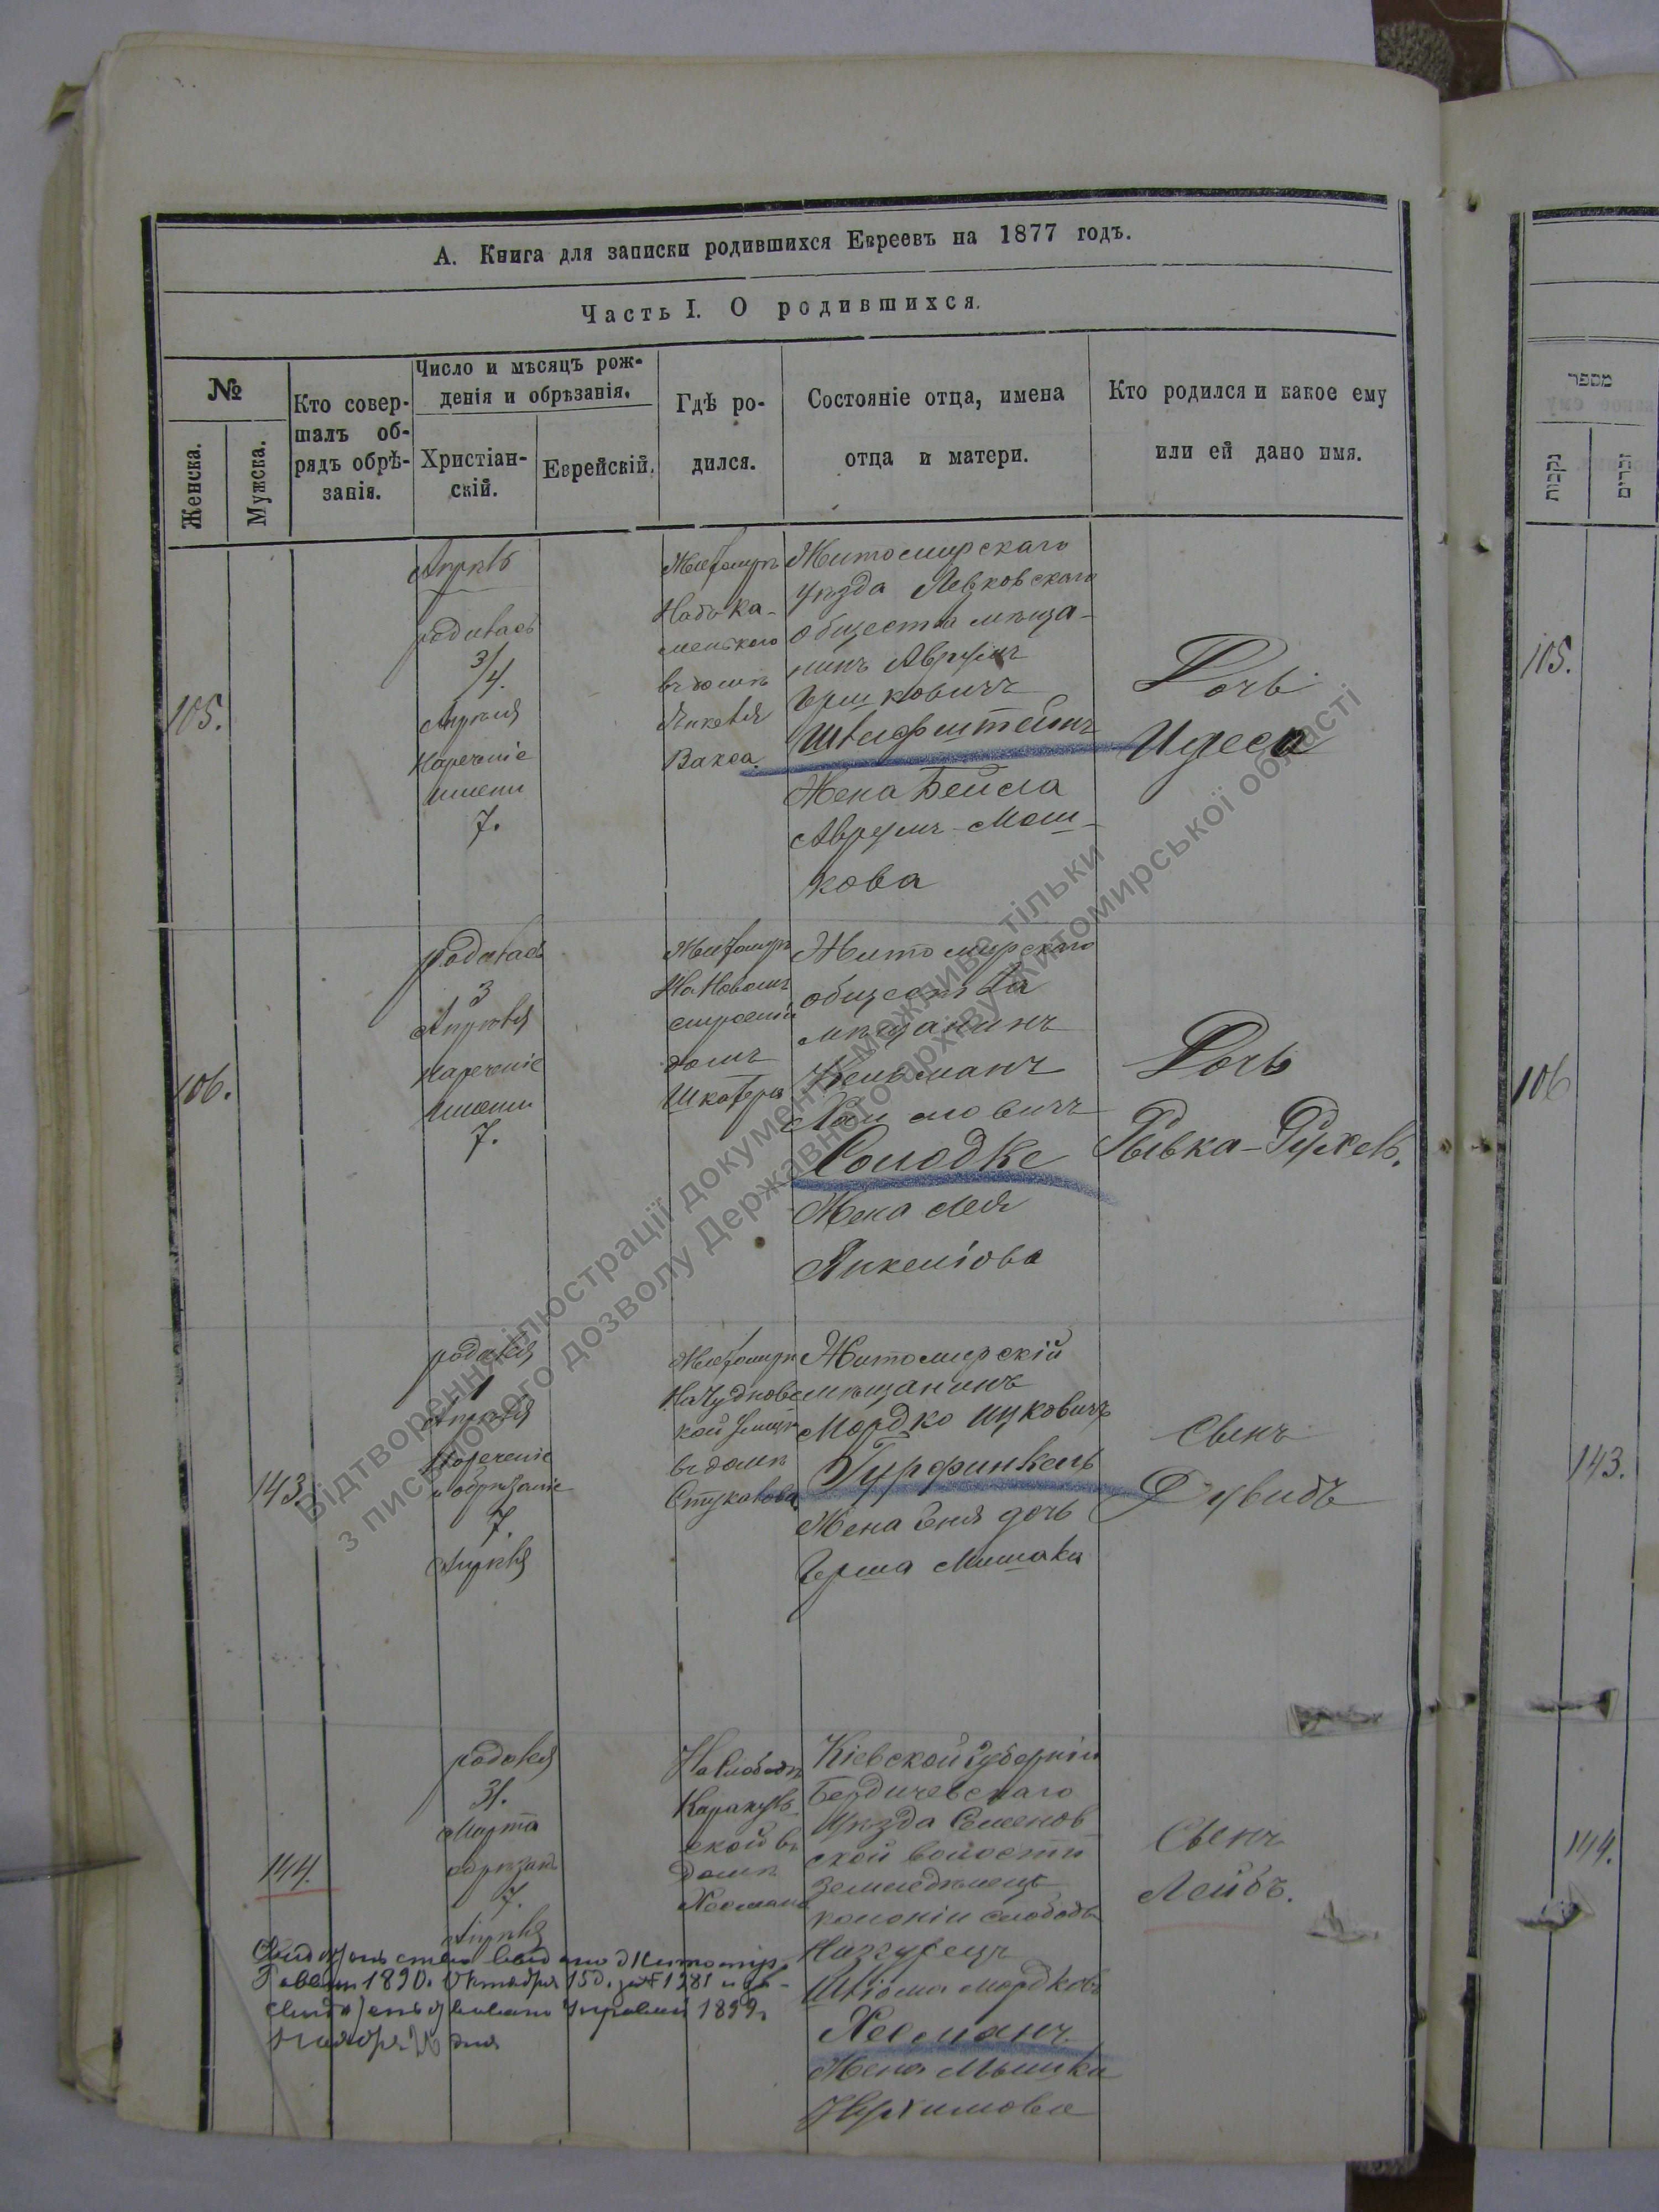 А. Книга для записки родившихся Евреевъ на 1877 годъ.
Часть I. О родившихся.
№
Женска.
Мужска.
Кто совер-
шалъ об-
рядъ обрѣ-
занія.
Число и мѣсяцъ рож-
денія и обрѣзанія.
Христіан-
скій.
Еврейскій.
Гдѣ ро-
дился.
Состояніе отца, имена
отца и матери.
Кто родился и какое ему
или ей дано имя.
105.
родилась
3/4.
Апрѣля
нареченіе
имени
7.
Житомиръ
въ домѣ
Вакса.
Житомирскаго
уѣзда Левковскаго
общества мѣща-
нинъ Аврумъ
Гершковичъ
Швифштейнъ
Жена Бейла
Аврумъ-Мош-
кова
Дочь
Идеса
106.
родилась
3
Апрѣля
нареченіе
имени
7.
Житомиръ
На Новомъ
строеніи
домъ
Житомирскаго
общества
мѣщанинъ
Кельманъ
Хаимовичъ
Солодке
Жена Лея
Янкеліова
Дочь
Рывка-Рухель.
143.
родился
1
Апрѣля
Нареченіе
и обрѣзаніе
7.
Апрѣля
Житомиръ
На Чуднов
ской улицѣ
въ домѣ
Стукалова
Житомирскій
мѣщанинъ
Мордко Ицковичъ
Гурфинкель
Жена Еня дочь
Герша
Сынъ
Дувидъ
144.
родился
31.
Марта
обрѣзанъ
7.
Апрѣля
На слободкѣ
ской въ
домѣ
Хесмана
Кіевской Губерніи
Бердичевскаго
Уѣзда Семенов
ской волости
земледѣлецъ
колоніи слобода
Шліома Мордковъ
Хесманъ
Жена Мышка
Нухимова
Сынъ
Лейбъ.
מספר
נקבות
זכרים
105.
106
143.
144.
Відтворення ілюстрації документу можливе тільки
з письмового дозволу Державного архіву Житомирської області